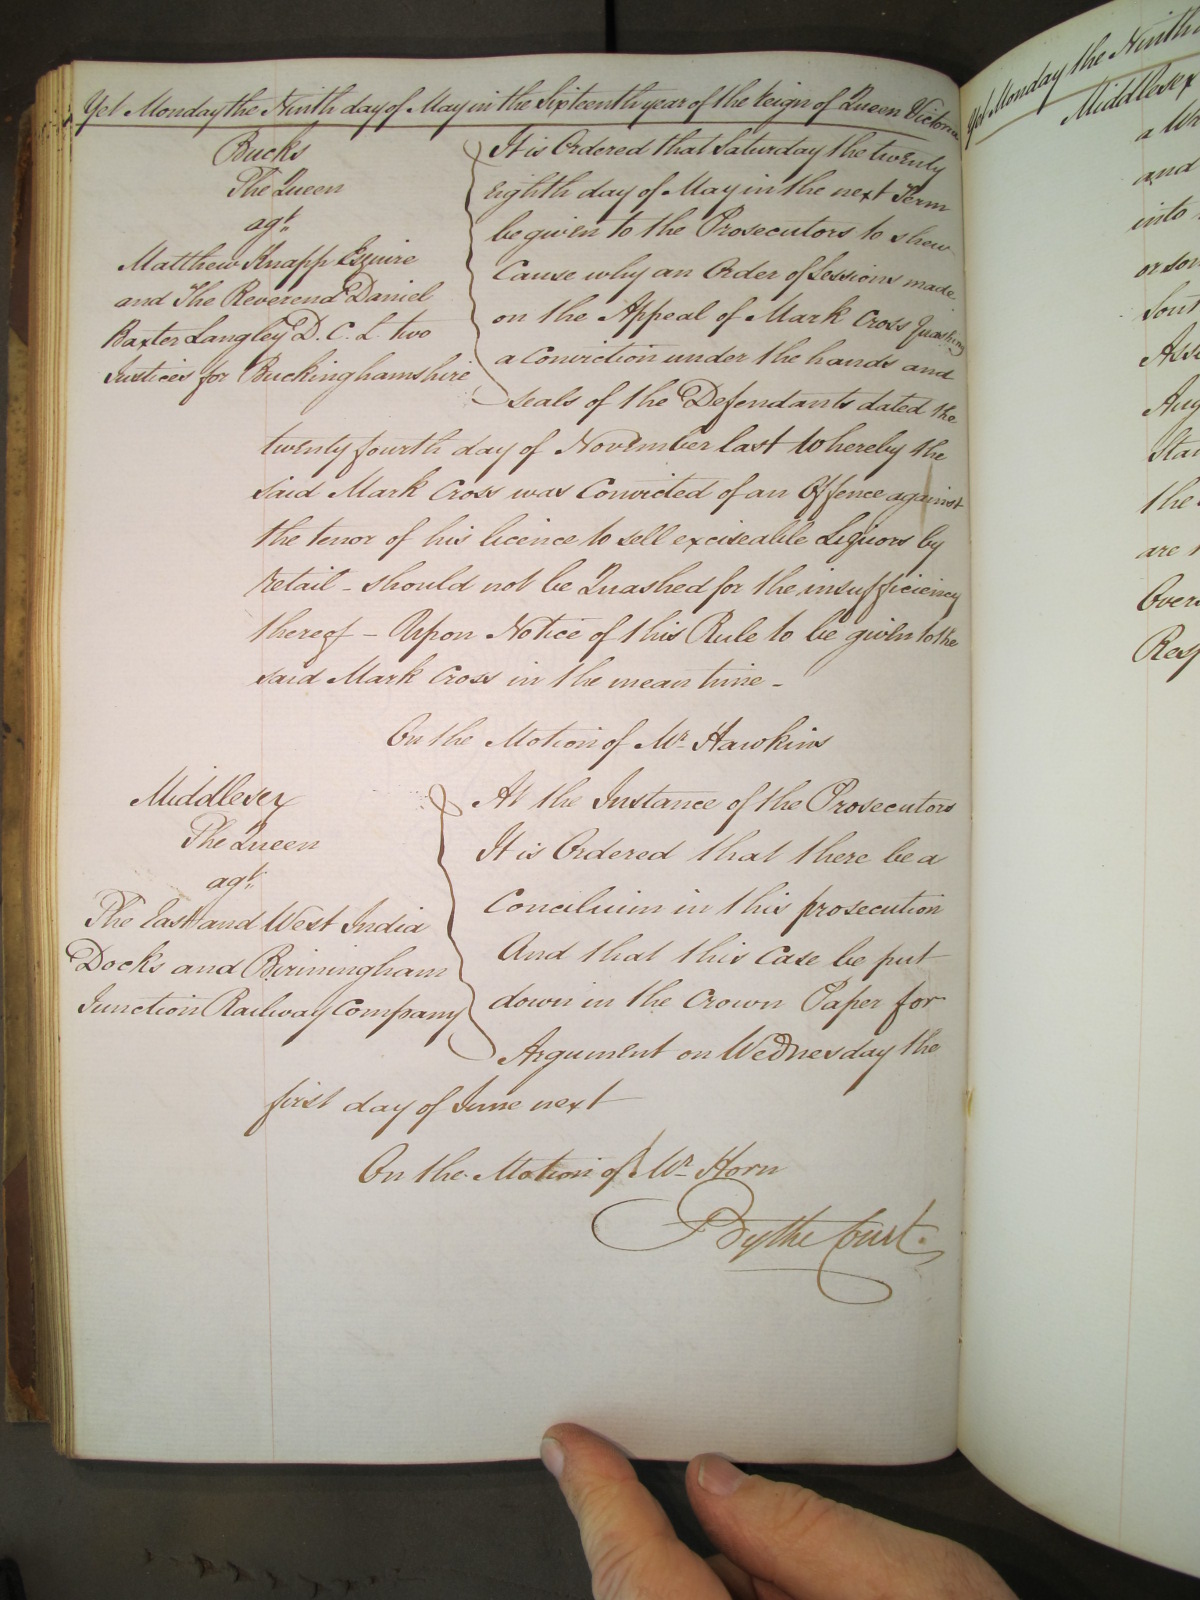 Yet Monday the Ninth day of May in the Sixteenth year of the Reign of Queen Victoria
Bucks
The Queen
agt.
Matthew Knapp Esquire
and The Reverend Daniel
Baxter Langley D. C. L two
Justices for Buckinghamshire
It is Ordered that Saturday the twenty
eighth day of May in the next Term
be given to the Prosecutors to shew
Cause why an Order of Sessions made
on the Appeal of Mark Cross Quashing
a Conviction under the hands and
seals of the Defendants dated the
twenty fourth day of November last whereby the
said Mark Cross was Convicted of an Offence against
the tenor of his licence to sell exciseable Liquors by
retail - should not be Quashed for the insufficiency
thereof - Upon Notice of this Rule to be given to the
said Mark Cross in the mean time -
On the Motion of Mr. Hawkins
Middlesex
The Queen
agt.
The East and West India
Docks and Birmingham
Junction Railway Company
At the Instance of the Prosecutors
It is Ordered that there be a
Concilium in this prosecution
And that this Case be put
down in the Crown Paper for
Argument on Wednesday the
first day of June next
On the Motion of Mr. Horn
By the Court.
Yet Monday the Ninth
Middlesex
and
into
the
are